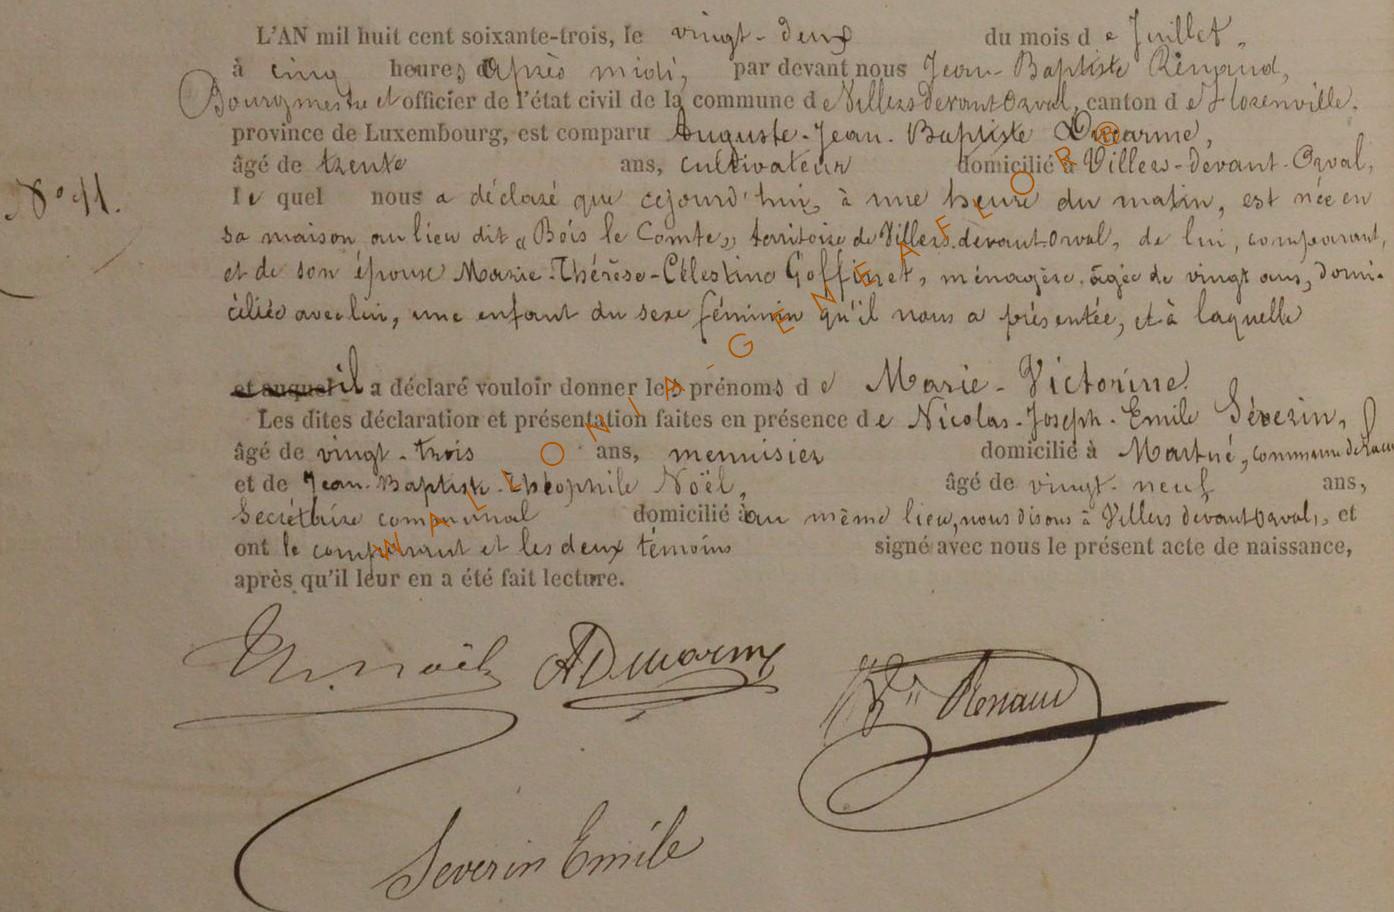 L'AN mil huit cent soixante-trois, le vingt-deux du mois de Juillet,
à cinq heures après midi, par devant nous Jean-Baptiste Renaud,
Bourgmestre et officier de l'état civil de la commune de Villers devant Orval, canton de Florenville.
province de Luxembourg, est comparu Auguste-Jean-Baptiste Ducarme,
âgé de trente ans, cultivateur domicilié à Villers-devant-Orval,
N° 11.
le quel nous a déclaré que cejourd'hui, à une heure du matin, est née en
sa maison au lieu dit „Bois le Comte„ territoire de Villers devant-Orval, de lui, comparant,
et de son épouse Marie-Thérèse-Célestine Goffinet, ménagère, âgée de vingt ans, domi-
ciliée avec lui, une enfant du sexe féminin qu'il nous a présentée, et à laquelle
et auquel il a déclaré vouloir donner les prénoms de Marie-Victorine.
Les dites déclaration et présentation faites en présence de Nicolas-Joseph-Emile Séverin,
âgé de vingt-trois ans, menuisier domicilié à Martué, commune de
et de Jean-Baptiste-Théophile Noël, âgé de vingt-neuf ans,
Secrétaire communal domicilié au même lieu, nous disons à Villers devant Orval, et
ont le comparant et les deux témoins signé avec nous le présent acte de naissance,
après qu'il leur en a été fait lecture.
Th. Noël ADucarme Renaud
Severin Emile
WALLONIA-GENEAFLOR®